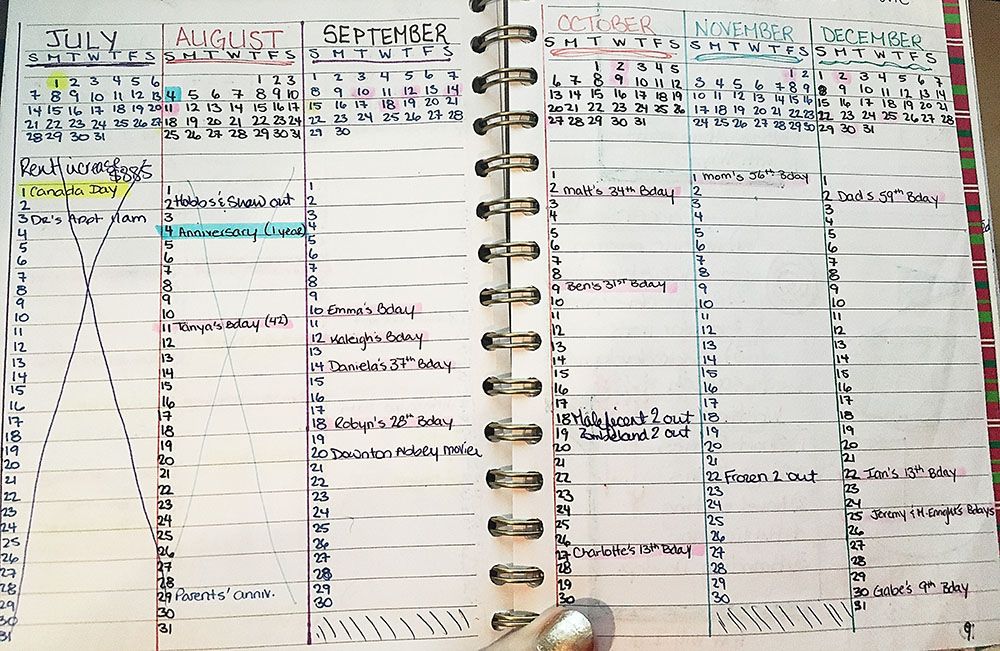 JULY
S M T W T F S
1 2 3 4 5 6
7 8 9 10 11 12 13
14 15 16 17 18 19 20
21 22 23 24 25 26 27
28 29 30 31
Rent increase $885
1 Canada Day
2
3 Dr's Appt 11am
4
5
6
7
8
9
10
11
12
13
14
15
16
17
18
19
20
21
22
23
24
25
26
27
28
29
30
31
AUGUST
S M T W T F S
1 2 3
4 5 6 7 8 9 10
11 12 13 14 15 16 17
18 19 20 21 22 23 24
25 26 27 28 29 30 31
1
2 Hobbs & Shaw out
3
4 Anniversary (1 year)
5
6
7
8
9
10
11 Tanya's Bday (42)
12
13
14
15
16
17
18
19
20
21
22
23
24
25
26
27
28
29 Parents' anniv.
30
31
SEPTEMBER
S M T W T F S
1 2 3 4 5 6 7
8 9 10 11 12 13 14
15 16 17 18 19 20 21
22 23 24 25 26 27 28
29 30
1
2
3
4
5
6
7
8
9
10 Emma's Bday
11
12 Kaleigh's Bday
13
14 Daniela's 37th Bday
15
16
17
18 Robyn's 28th Bday
19
20 Downton Abbey movie
21
22
23
24
25
26
27
28
29
30
OCTOBER
S M T W T F S
1 2 3 4 5
6 7 8 9 10 11 12
13 14 15 16 17 18 19
20 21 22 23 24 25 26
27 28 29 30 31
1
2 Matt's 34th Bday
3
4
5
6
7
8
9 Ben's 31st Bday
10
11
12
13
14
15
16
17
18 Maleficent 2 out
19 Zombieland 2 out
20
21
22
23
24
25
26
27 Charlotte's 13th Bday
28
29
30
NOVEMBER
S M T W T F S
1 2
3 4 5 6 7 8 9
10 11 12 13 14 15 16
17 18 19 20 21 22 23
24 25 26 27 28 29 30
1 mom's 56th Bday
2
3
4
5
6
7
8
9
10
11
12
13
14
15
16
17
18
19
20
21
22 Frozen 2 out
23
24
25
26
27
28
29
30
DECEMBER
S M T W T F S
1 2 3 4 5 6 7
8 9 10 11 12 13 14
15 16 17 18 19 20 21
22 23 24 25 26 27 28
29 30 31
1
2 Dad's 59th Bday
3
4
5
6
7
8
9
10
11
12
13
14
15
16
17
18
19
20
21
22 Ian's 13th Bday
23
24
25 Jeremy & M. Enright's Bdays
26
27
28
29
30 Gabe's 9th Bday
31
9